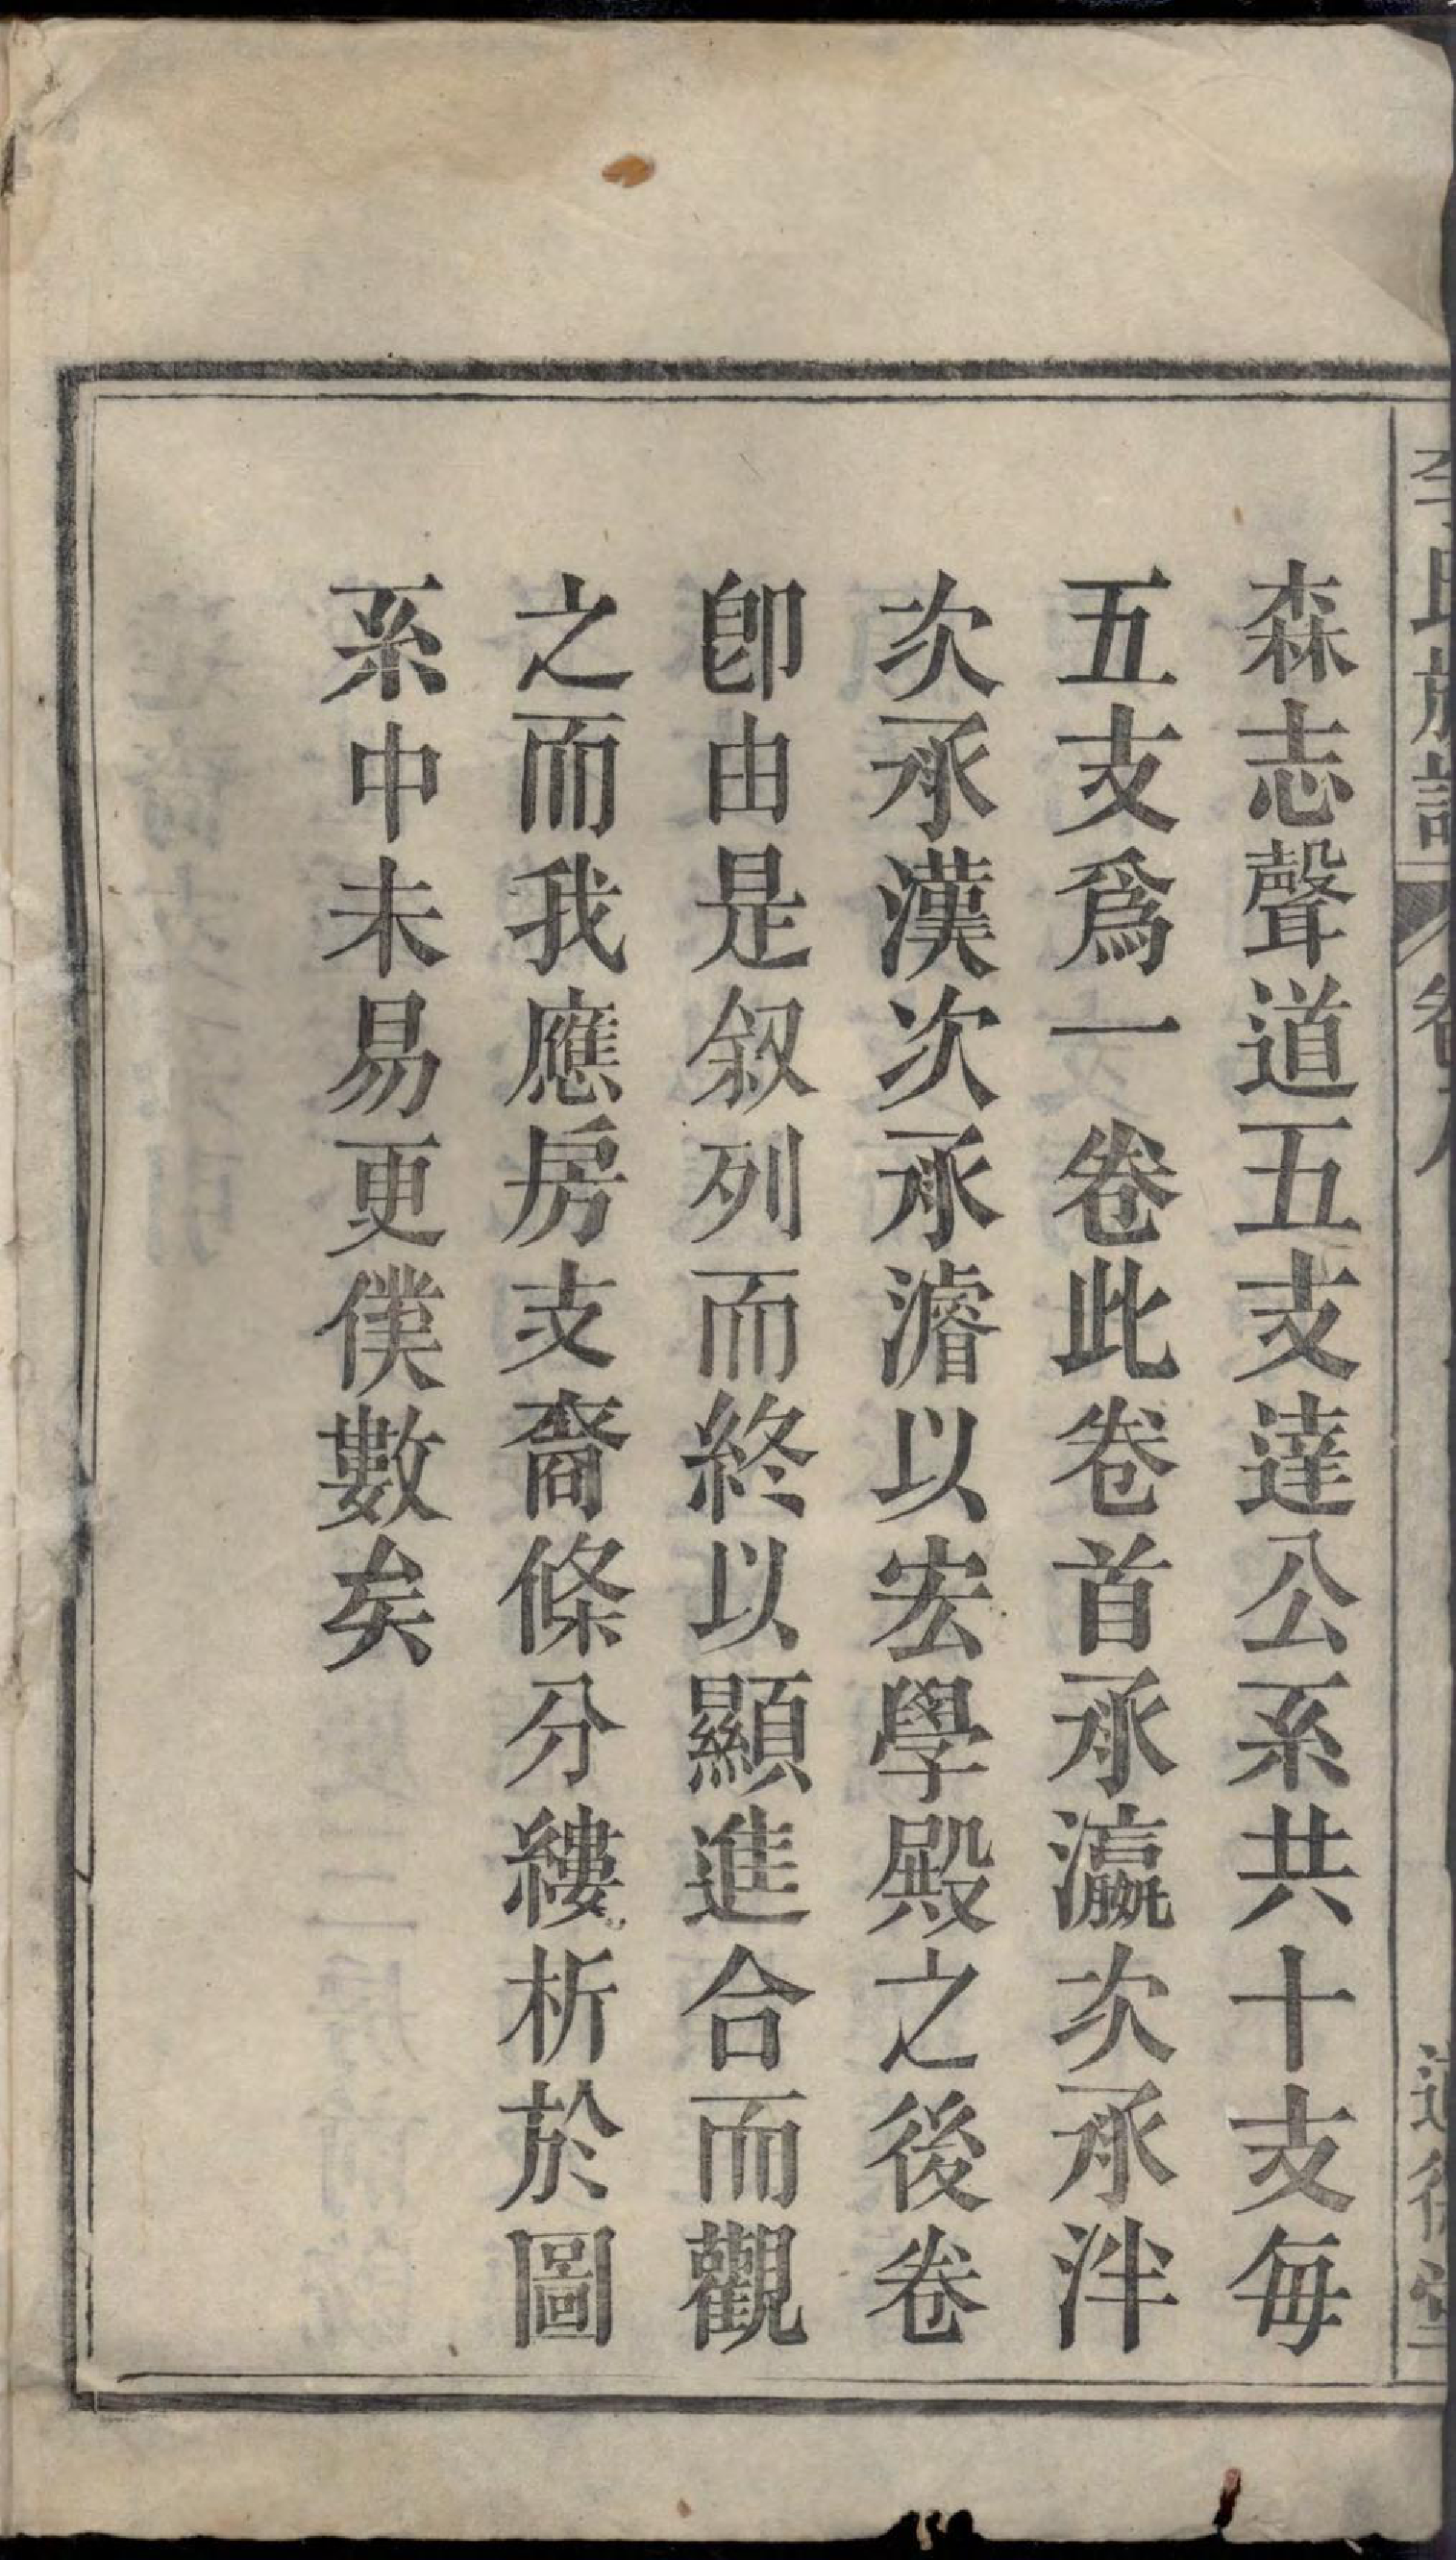 森志聲道五支達公系共十支每
五支爲一卷此卷首承瀛次承泮
次承漢次承濬以宏學殿之後卷
卽由是叙列而終以顯進合而觀
之而我應房支裔條分縷析於圖
系中未易更僕數矣